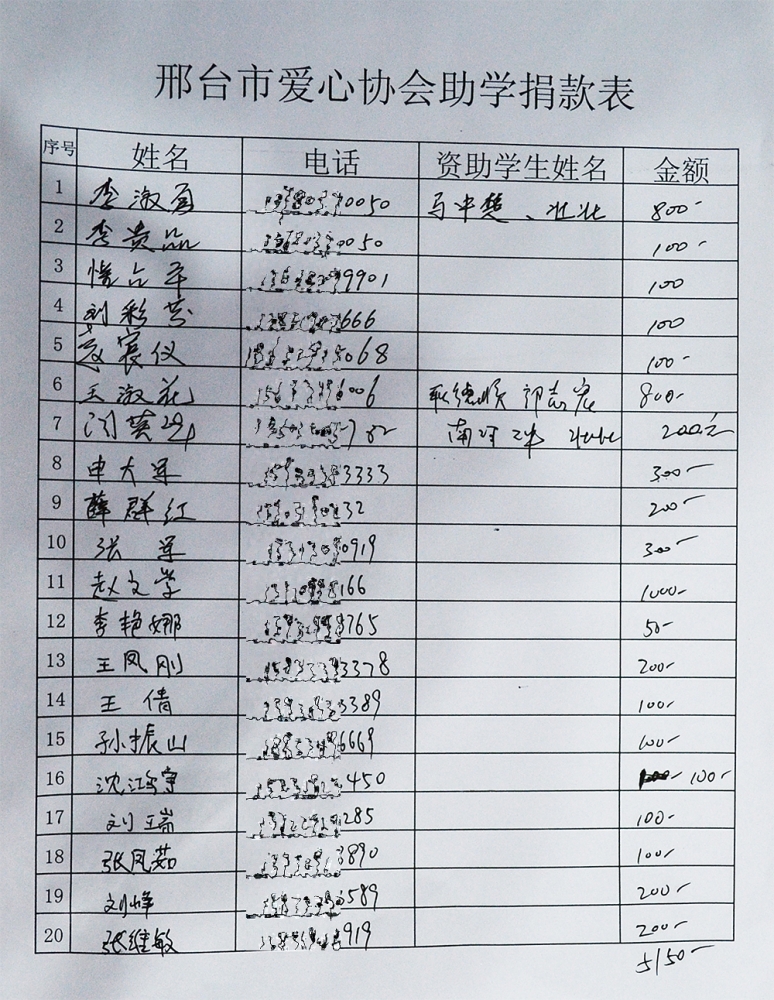 邢台市爱心协会助学捐款表
序号 姓名 电话 资助学生姓名 金额
1 李淑 0050 马中楚、壮壮 800-
2 李贵品 0050 100-
3 9901 100
4 刘彩芳 666 100
5 宸仪 068 100-
6 王淑花 6006 耿德顺 郭志宏 800-
7 闫英 782 200元
8 申大军 3333 300-
9 薛群红 32 200-
10 张军 0919 300-
11 赵文学 166 1000-
12 李艳娜 8765 50-
13 王凤刚 3378 200-
14 王倩 3389 100-
15 孙振山 6669 100-
16 沈 450 100-
17 刘瑞 285 100-
18 张凤茹 3890 100-
19 刘峰 589 200-
20 张维敏 919 200-
5150-